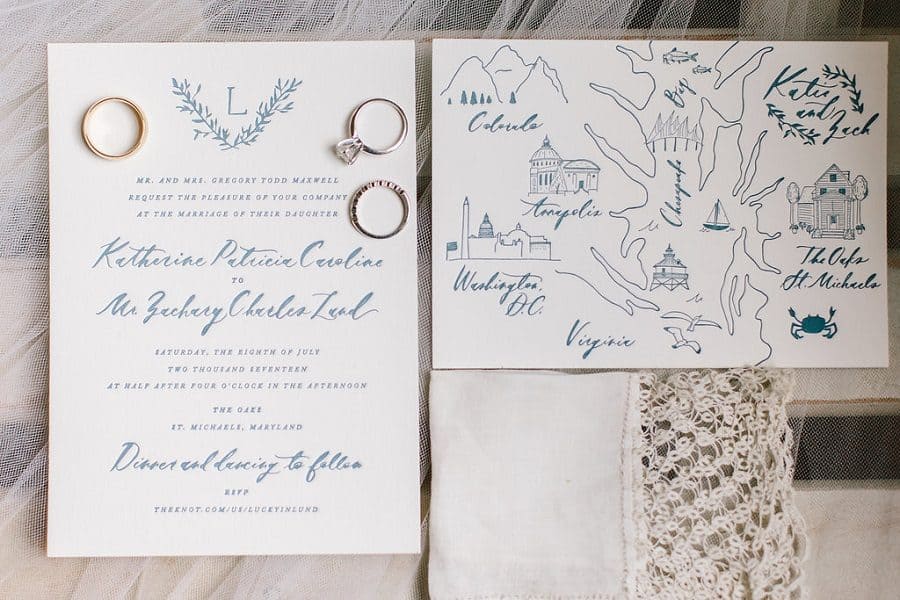 L
MR. AND MRS. GREGORY TODD MAXWELL
REQUEST THE PLEASURE OF YOUR COMPANY
AT THE MARRIAGE OF THEIR DAUGHTER
Katherine Patricia Caroline
TO
Mr. Zachary Charles Lund
SATURDAY, THE EIGHTH OF JULY
TWO THOUSAND SEVENTEEN
AT HALF AFTER FOUR O'CLOCK IN THE AFTERNOON
THE OAKS
ST. MICHAELS, MARYLAND
Dinner and dancing to follow
RSVP
THEKNOT.COM/US/LUCKYINLUND
Colorado
Annapolis
Washington,
D.C.
Virginia
Chesapeake
Bay
Katie
and
Zach
The Oaks
St. Michaels